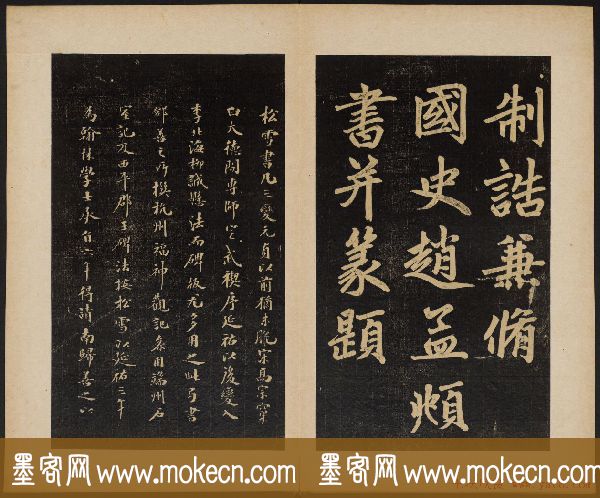 制誥兼脩
國史趙孟頫
書并篆題
松雪書凡三變元貞以前猶未脫宋高宗窠
臼大德間專師定武禊序延祐以後變入
李北海柳誠懸法而碑板尤多用之此為書
鄧善之所撰杭州福神觀記兼用端州石
室記及西平郡王碑法按松雪以延祐三年
為翰林學士承旨六年得請南歸善之以
墨客网 www.mokecn.com 墨客网 www.mokecn.com